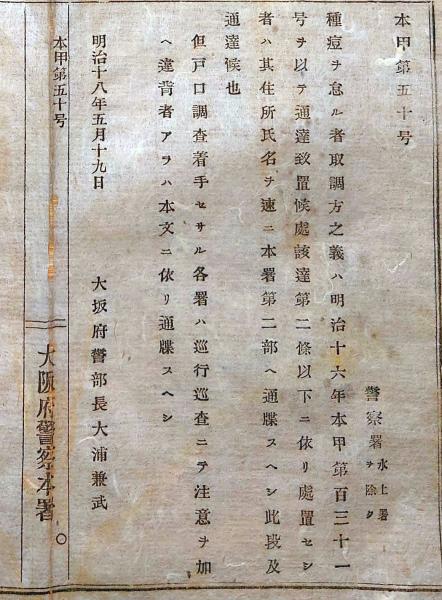 本甲第五十号
警察署 水上署ヲ除ク
種痘ヲ怠ル者取調方之義ハ明治十六年本甲第百三十一
号ヲ以テ通達致置候處該達第二條以下ニ依リ處置セシ
者ハ其住所氏名ヲ速ニ本署第二部ヘ通牒スヘシ此段及
通達候也
但戸口調査着手セサル各署ハ巡行巡査ニテ注意ヲ加
ヘ違背者アラハ本文ニ依リ通牒スヘシ
明治十八年五月十九日
大坂府警部長大浦兼武
本甲第五十号
大阪府警察本署